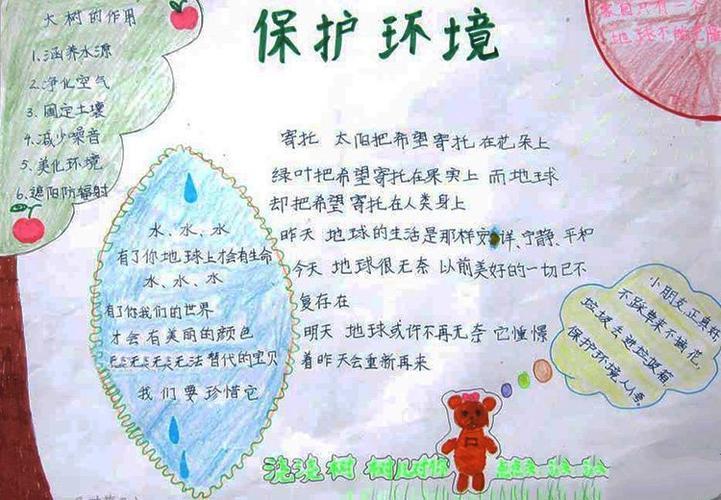 保护环境
大树的作用
1.涵养水源
2.净化空气
3.固定土壤
4.减少噪音
5.美化环境
6.遮阳防辐射
家园只有一个
地球不能
寄托 太阳把希望寄托在花朵上
绿叶把希望寄托在果实上 而地球
却把希望寄托在人类身上
昨天 地球的生活是那样安详、宁静、平和
今天 地球很无奈 以前美好的一切已不
复存在
明天 地球或许不再无奈 它憧憬
着昨天会重新再来
水、水、水
有了你地球上才会有生命
水、水、水
有了你我们的世界
才会有美丽的颜色
无法替代的宝贝
我们要珍惜它
小朋友,正真好,
不踩草来不摘花,
垃圾丢进垃圾箱,
保护环境人人夸。
浇浇树 树儿对你